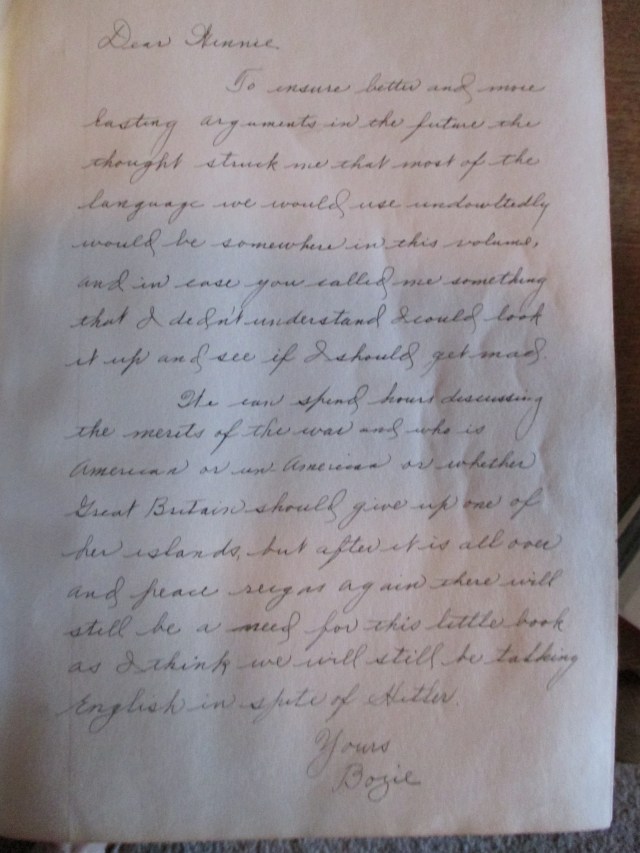 Dear Hennie.
To insure better and more
lasting arguments in the future the
thought struck me that most of the
language we would use undowltedly
would be somewhere in this volume,
and in case you called me something
that I didn't understand I could look
it up and see if I should get mad.
We can spend hours discussing
the merits of the war and who is
American or un American or whether
Great Britain should give up one of
her islands, but after it is all over
and peace reigns again there will
still be a need for this little book
as I think we will still be talking
English in spite of Hitler.
Yours
Bozie